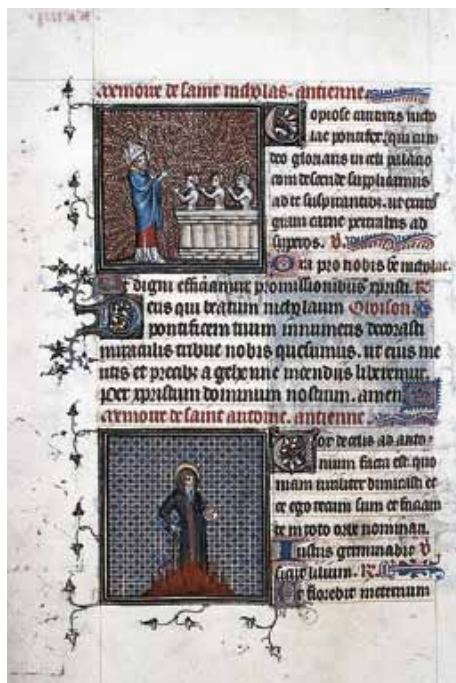 memoire de saint nicholas. antienne
copiose caritatis nicho
lae pontifex. qui cum
deo glorians in celi palacio
condescende supplicamus
ad te suspirantibus. ut exutos
graui carne pertrahas ad
superos. V.
Ora pro nobis be nicholae.
Ut digni efficiamur promissionibus xpristi. R
Deus qui beatum nicholaum Oroison
pontificem tuum innumeris decorasti
miraculis tribue nobis quesumus. ut eius me
ritis et precibz a gehenne incendijs liberemur.
per xpristum dominum nostrum. amen
memoire de saint antoine. antienne
Vox de celis ad antho
nium facta est. quo
niam uiriliter dimicasti et
ce ego tecum sum et faciam
te in toto orbe nominari.
Iustus germinabit V
sicut lilium. R.
Et florebit in eternum